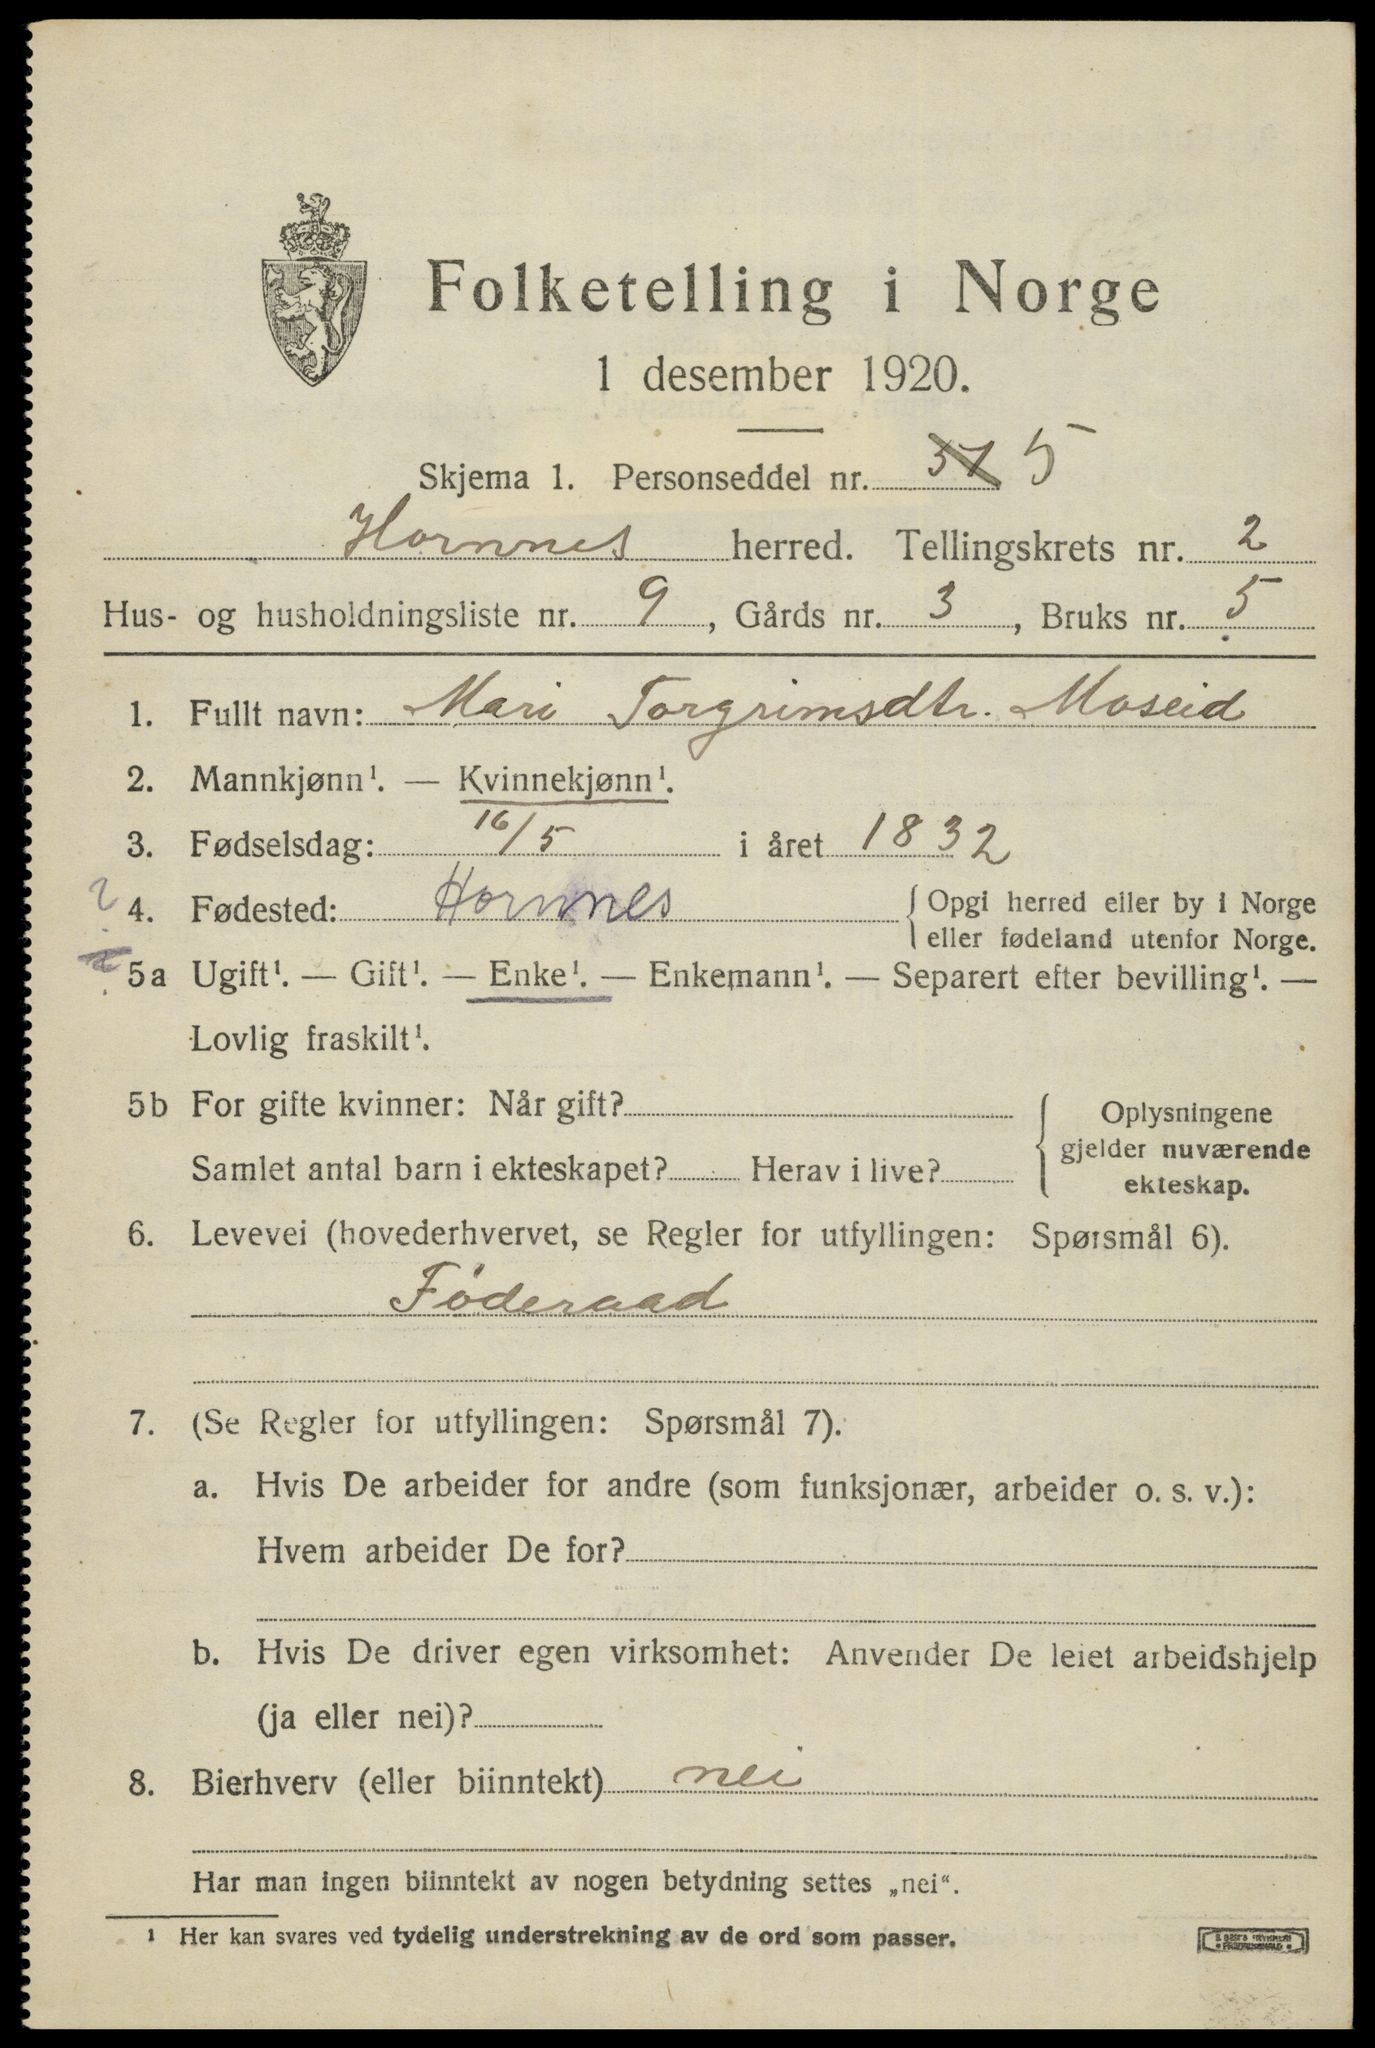 Folketelling i Norge
1 desember 1920.
Skjema 1. Personseddel nr. 37 5
Hornnes herred. Tellingskrets nr. 2
Hus- og husholdningsliste nr. 9, Gårds nr. 3, Bruks nr. 5
1. Fullt navn: Mari Torgrimsdtr. Moseid
2. Mannkjønn¹. — Kvinnekjønn¹.
3. Fødselsdag: 16/5 i året 1832
? 4. Fødested: Hornnes { Opgi herred eller by i Norge
eller fødeland utenfor Norge.
5a Ugift¹. — Gift¹. — Enke¹. — Enkemann¹. — Separert efter bevilling¹. —
Lovlig fraskilt¹.
5b For gifte kvinner: Når gift? { Oplysningene
gjelder nuværende
Samlet antal barn i ekteskapet? Herav i live?
ekteskap.
6. Levevei (hovederhvervet, se Regler for utfyllingen: Spørsmål 6).
Föderaad
7. (Se Regler for utfyllingen: Spørsmål 7).
a. Hvis De arbeider for andre (som funksjonær, arbeider o. s. v.):
Hvem arbeider De for?
b. Hvis De driver egen virksomhet: Anvender De leiet arbeidshjelp
(ja eller nei)?
8. Bierhverv (eller biinntekt) nei
Har man ingen biinntekt av nogen betydning settes „nei“.
¹ Her kan svares ved tydelig understrekning av de ord som passer.